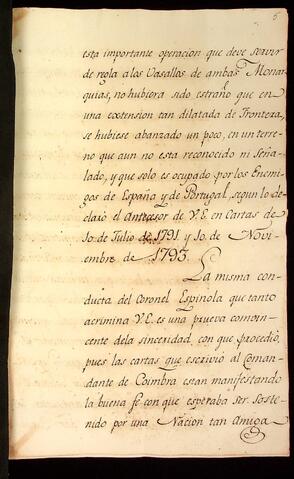 5
esta importante operacion que deve servir
de regla a los Vasallos de ambas Monar
quias, no hubiera sido estraño que en
una extension tan dilatada de Frontera,
se hubiese abanzado un poco, en un terre
no que aun no esta reconocido ni Seña
lado, y que solo es ocupado por los Enemi
gos de España y de Portugal, segun lo de
claró el Antecesor de V.E. en Cartas de
10 de Julio de 1791 y 10 de Novi
embre de 1793.
La misma con
ducta del Coronel Espinola que tanto
acrimina V.E. es una prueva combin
cente dela sinceridad con que procedió,
pues las cartas que escrivió al Coman
dante de Coimbra estan manifestando
la buena fe con que esperaba ser Soste
nido por una Nacion tan Amiga